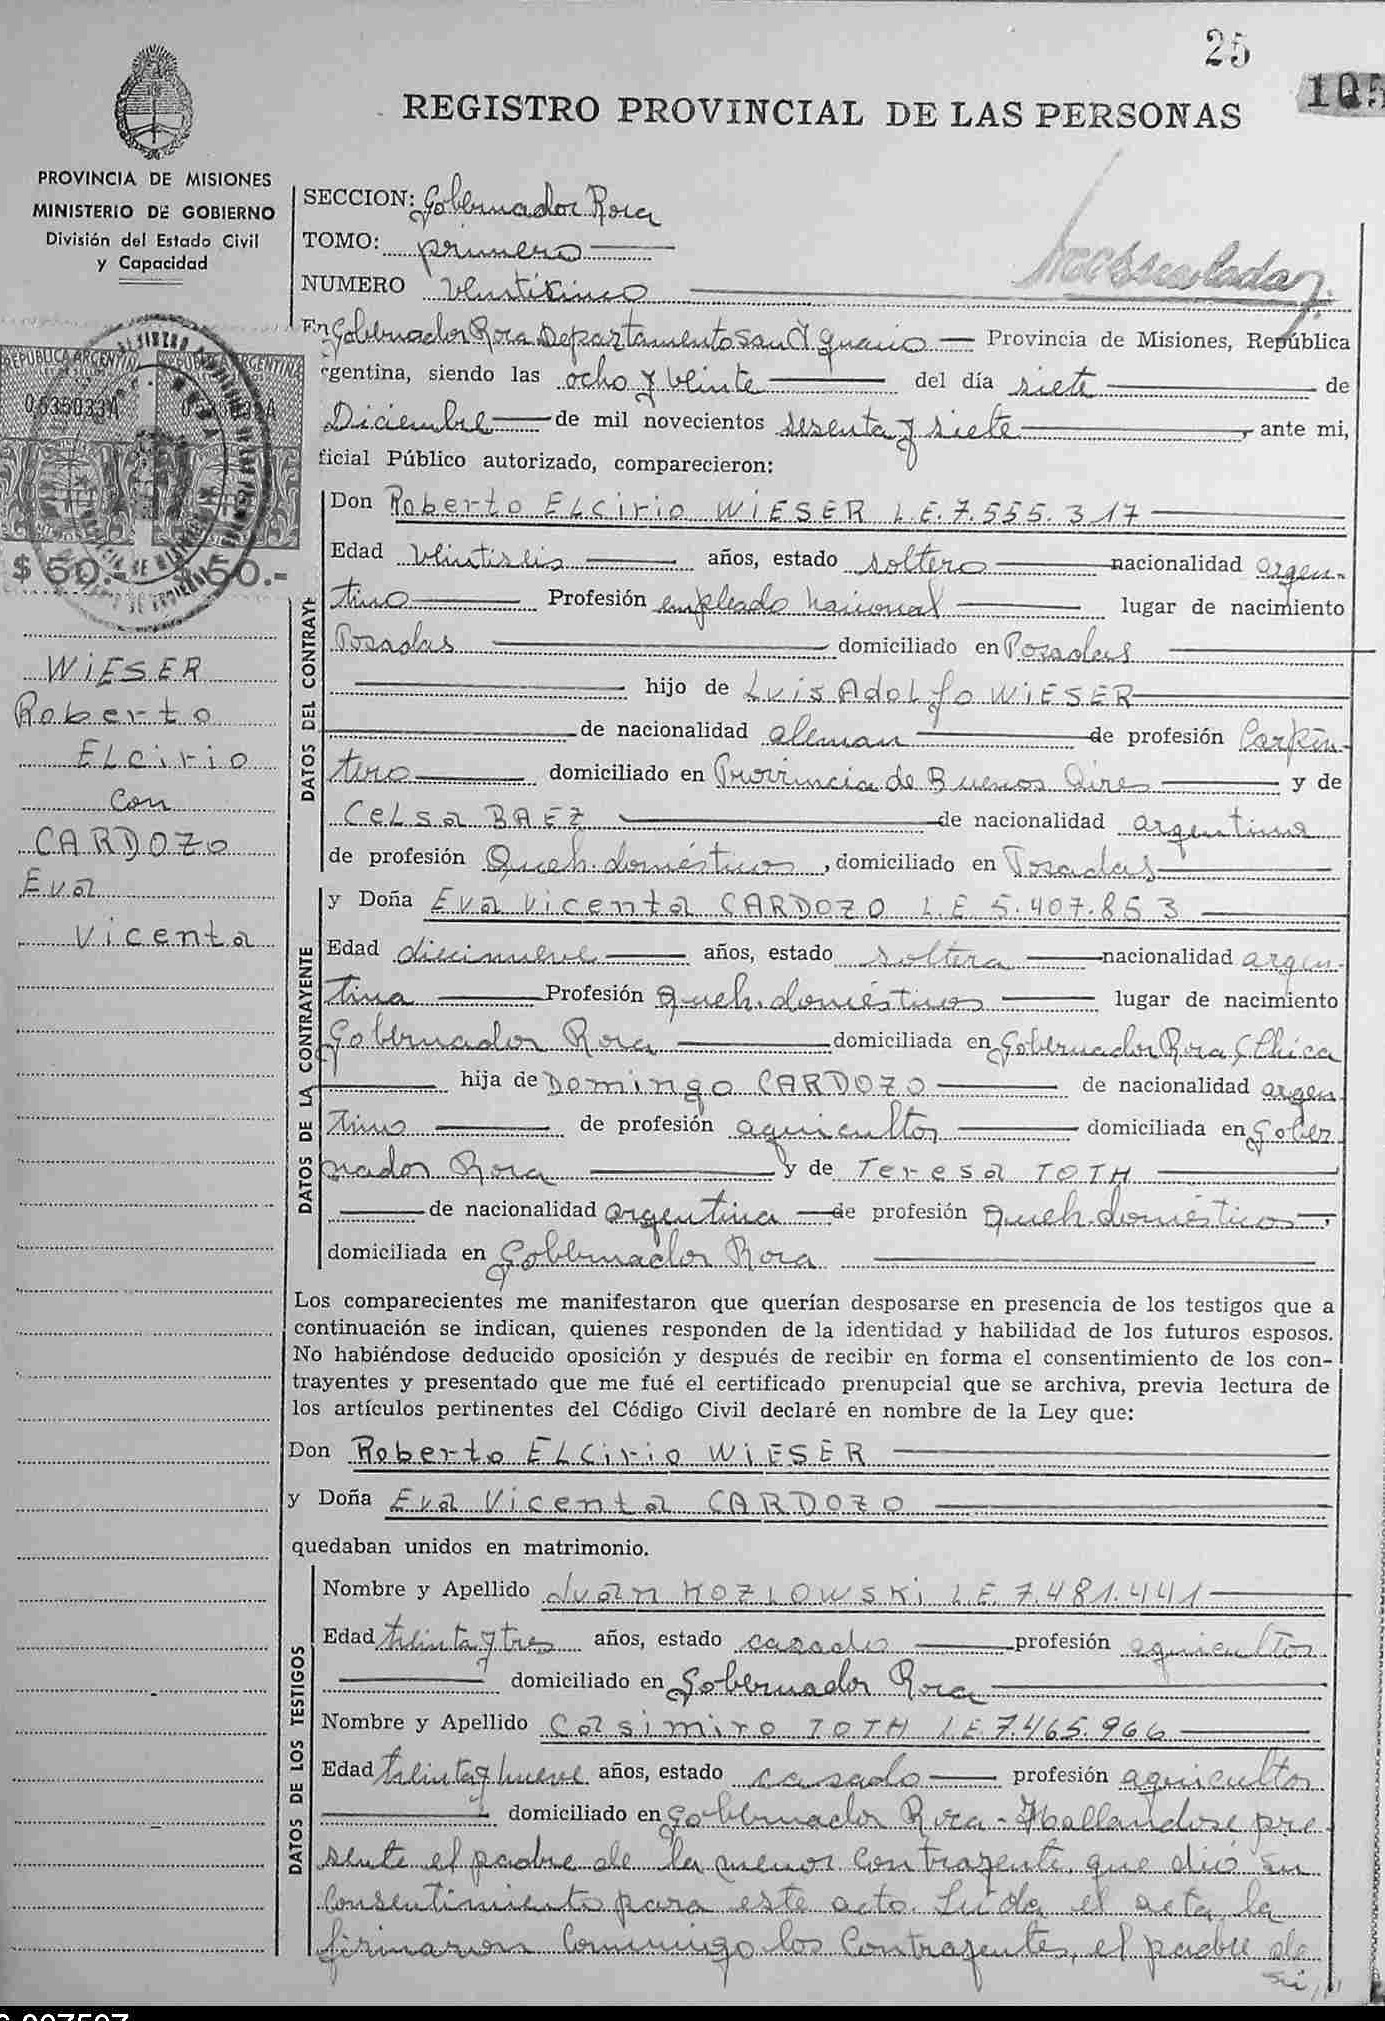 25
105
REGISTRO PROVINCIAL DE LAS PERSONAS
PROVINCIA DE MISIONES
MINISTERIO DE GOBIERNO
División del Estado Civil
y Capacidad
SECCION: Gobernador Roca
TOMO: primero
NUMERO Veinticinco
En Gobernador Roca Departamento San Ignacio Provincia de Misiones, República
rgentina, siendo las ocho y veinte del día siete de
Diciembre de mil novecientos sesenta y siete, ante mi,
ficial Público autorizado, comparecieron:
REPUBLICA ARGENTINA
$ 50.- 50.-
WiESER
Roberto
ELcirio
con
CARDOZO
Eva
Vicenta
DATOS DEL CONTRAYE
Don Roberto ELcirio WiESER L.E. 7.555.317
Edad Veintiseis años, estado soltero nacionalidad argen-
tino Profesión empleado Nacional lugar de nacimiento
Posadas domiciliado en Posadas
hijo de Luis AdoLfo WiESER
de nacionalidad aleman de profesión Carpin-
tero domiciliado en Provincia de Buenos Aires y de
CeLsa BAEZ de nacionalidad argentina
de profesión Queh. domésticos, domiciliado en Posadas
DATOS DE LA CONTRAYENTE
y Doña Eva Vicenta CARDOZO L.E 5.407.853
Edad diecinueve años, estado soltera nacionalidad argen-
tina Profesión Queh. domésticos lugar de nacimiento
Gobernador Roca domiciliada en Gobernador Roca
hija de Domingo CARDOZO de nacionalidad argen
tino de profesión agricultor domiciliada en Gober
nador Roca y de Teresa TOTH
de nacionalidad argentina de profesión Queh. domésticos,
domiciliada en Gobernador Roca
Los comparecientes me manifestaron que querían desposarse en presencia de los testigos que a
continuación se indican, quienes responden de la identidad y habilidad de los futuros esposos.
No habiéndose deducido oposición y después de recibir en forma el consentimiento de los con-
trayentes y presentado que me fué el certificado prenupcial que se archiva, previa lectura de
los artículos pertinentes del Código Civil declaré en nombre de la Ley que:
Don Roberto ELcirio WiESER
y Doña Eva Vicenta CARDOZO
quedaban unidos en matrimonio.
DATOS DE LOS TESTIGOS
Nombre y Apellido Juan KOZLOWSKi L.E 7.481.441
Edad treinta y tres años, estado casado profesión agricultor
domiciliado en Gobernador Roca
Nombre y Apellido Casimiro TOTH L.E. 7.465.966
Edad treinta y nueve años, estado casado profesión agricultor
domiciliado en Gobernador Roca - Hallandose pre-
sente el padre de la menor Contrayente, que dió su
consentimiento para este acto. Leída el acta, la
firmaron Conmigo los Contrayentes, el padre de